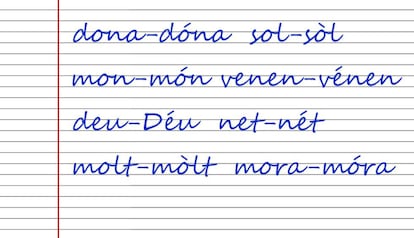 dona-dóna sol-sòl
mon-món venen-vénen
deu-Déu net-nét
molt-mòlt mora-móra